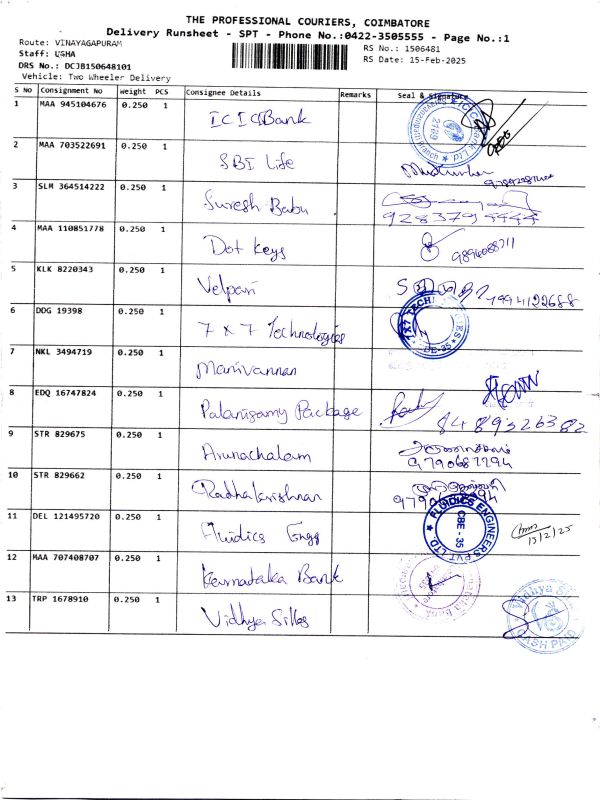 THE PROFESSIONAL COURIERS, COIMBATORE
Delivery Runsheet - SPT - Phone No.:0422-3505555 - Page No.:1
Route: VINAYAGAPURAM
Staff: USHA
DRS No.: DCJB150648101
Vehicle: Two Wheeler Delivery
RS No.: 1506481
RS Date: 15-Feb-2025
S No Consignment No Weight PCS Consignee Details Remarks Seal & Signature
1 MAA 945104676 0.250 1 ICICI Bank
2 MAA 703522691 0.250 1 SBI Life
3 SLM 364514222 0.250 1 Suresh Babu
4 MAA 110851778 0.250 1 Dot Keys
5 KLK 8220343 0.250 1 Velpari
6 DDG 19398 0.250 1 7 x 7 Technologies
7 NKL 3494719 0.250 1 Manivannan
8 EDQ 16747824 0.250 1 Palanisamy Package 8489326382
9 STR 829675 0.250 1 Arunachalam 9790687294
10 STR 829662 0.250 1 Radhakrishnan
11 DEL 121495720 0.250 1 Fluidics Engg FLUIDICS ENGINEERS PVT LTD CBE - 35 13/2/25
12 MAA 707408707 0.250 1 Karnataka Bank
13 TRP 1678910 0.250 1 Vidhya Silks CASH PAID